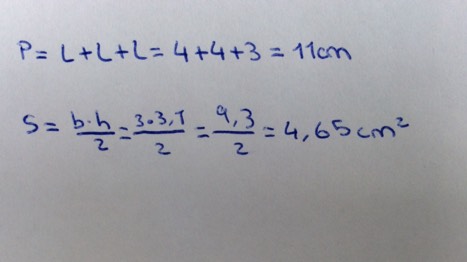 P = L+L+L = 4+4+3 = 11cm
S = b·h/2 = 3·3,1/2 = 9,3/2 = 4,65cm²